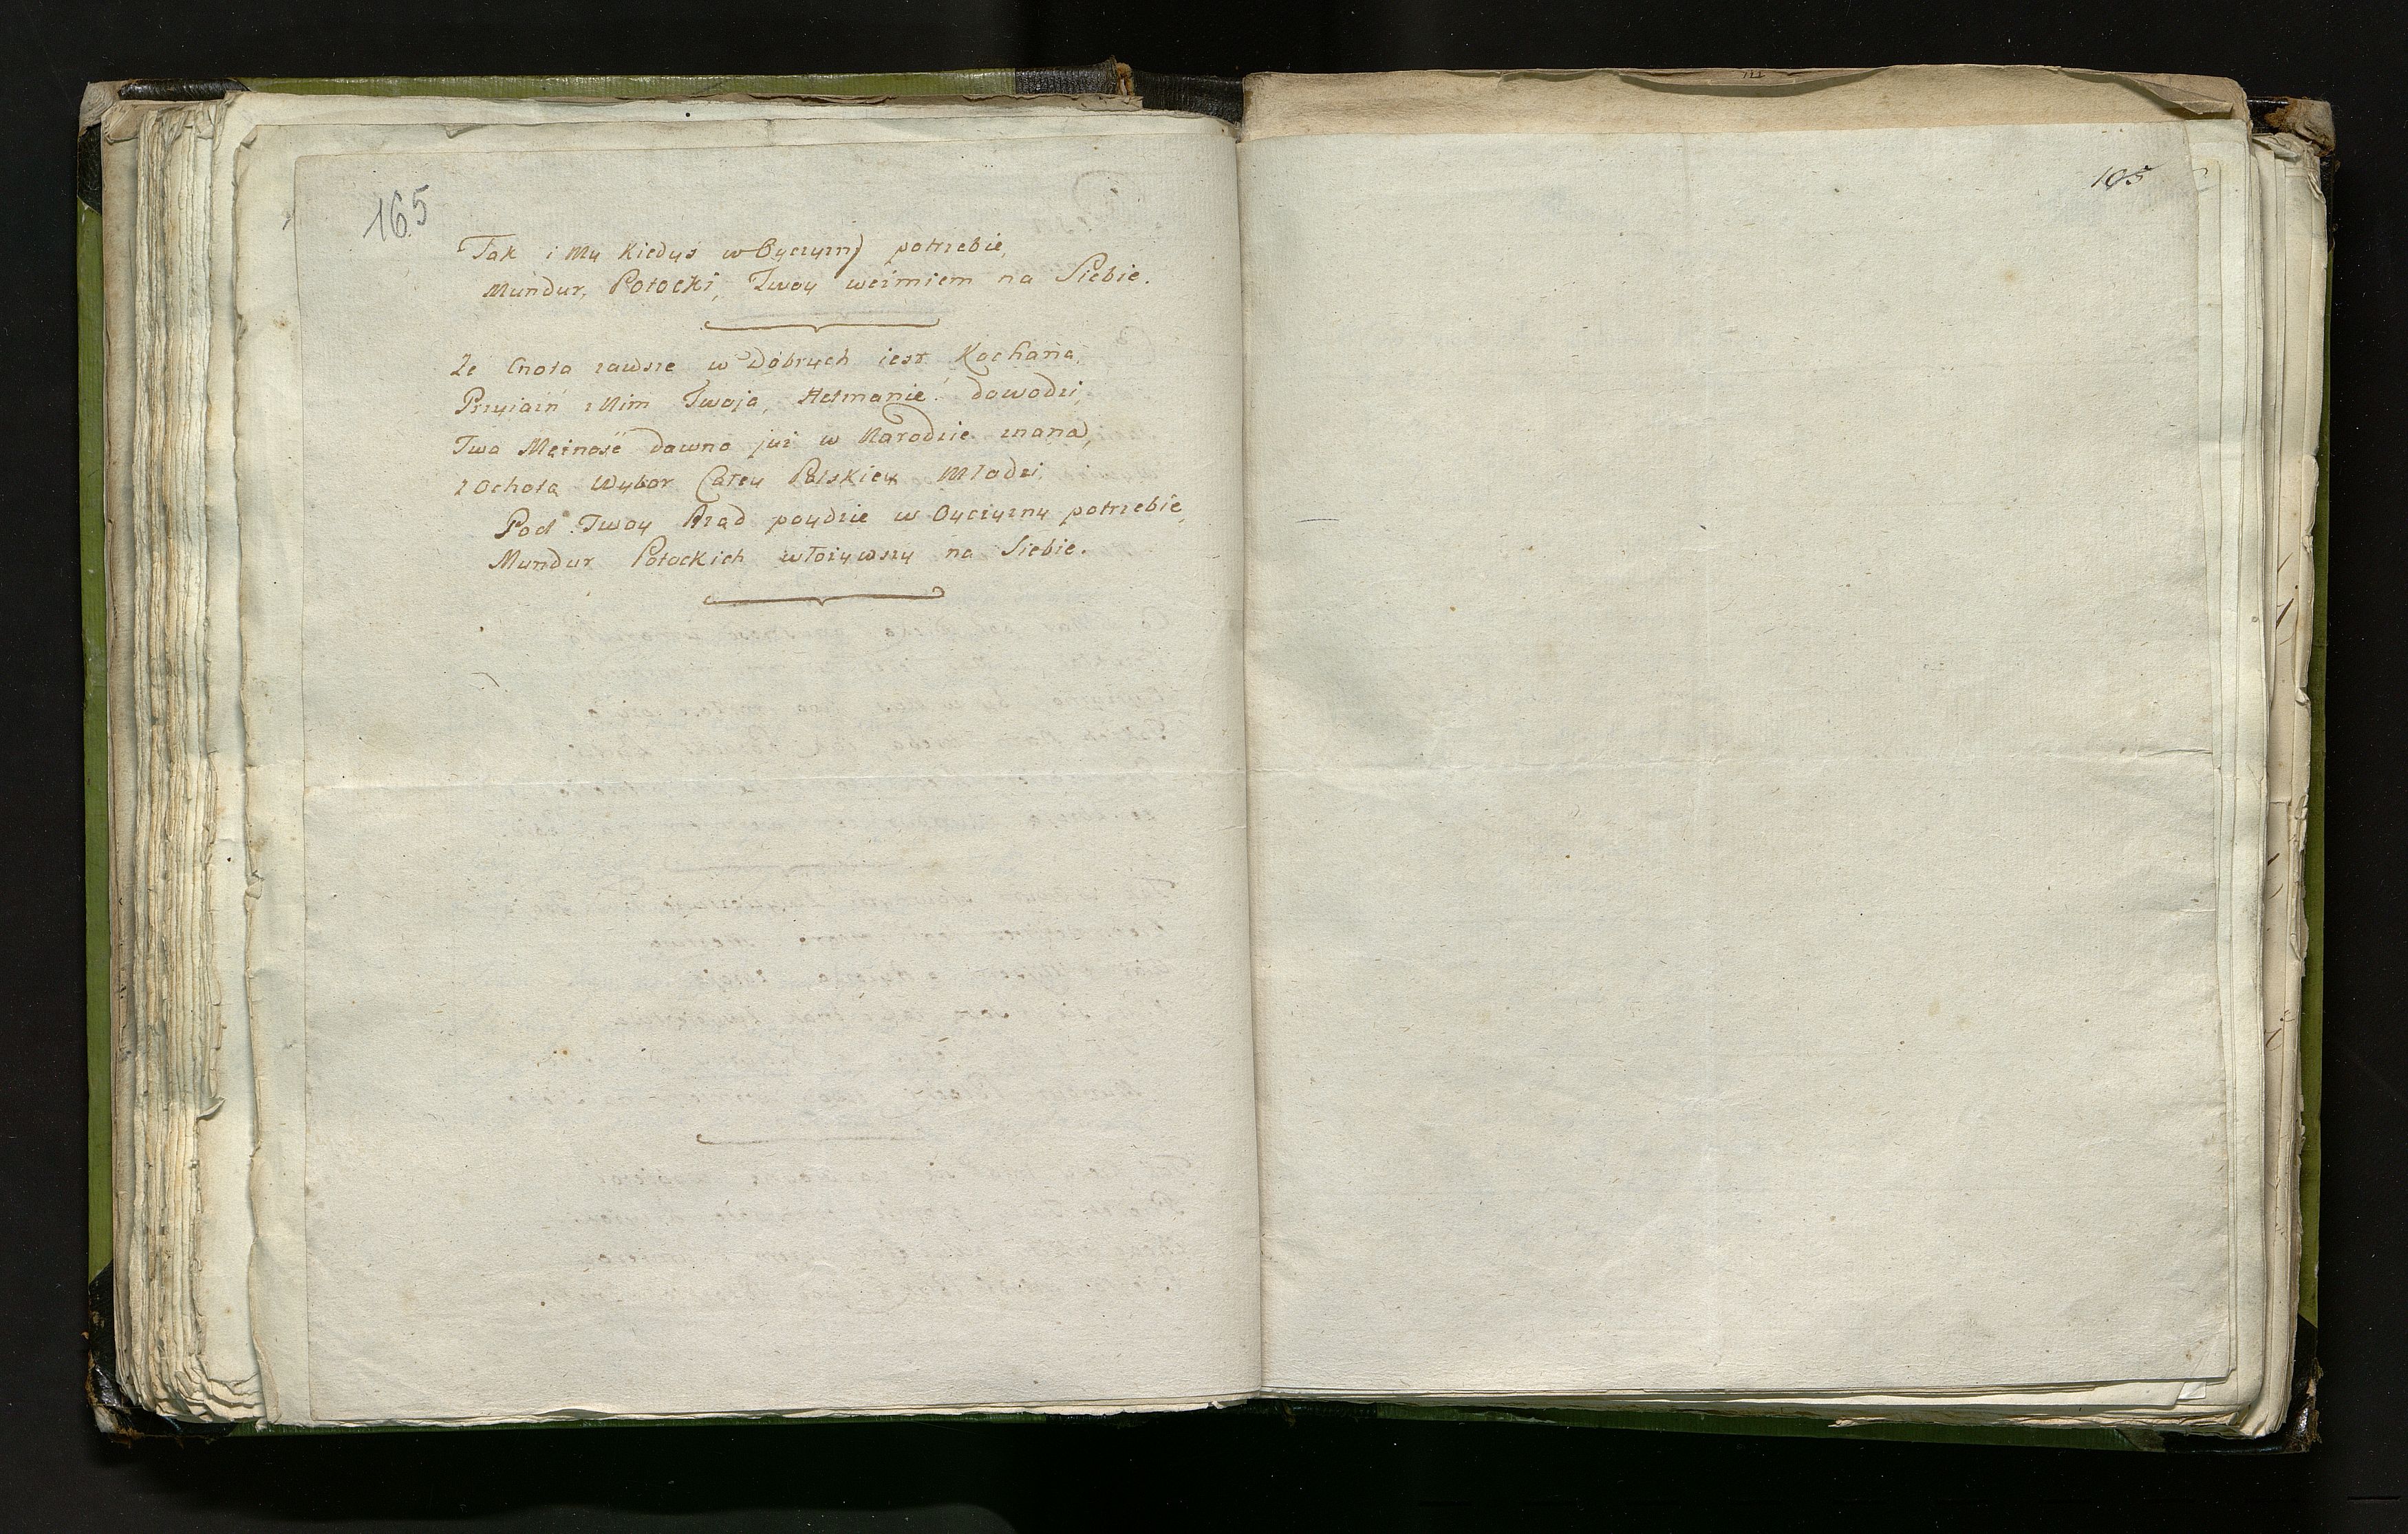 165
Tak i My kiedyś w Oyczyzny potrzebie,
Mundur, Potocki, Twoy weźmiem na Siebie.
Że Cnota zawsze w Dobrych iest Kochana,
Przyiaźń z Nim Twoja, Hetmanie! dowodzi,
Twa Mężność dawno już w Narodzie znana,
z Ochotą Wybor Całey Polskiey Młodzi,
Pod Twoy Rząd poydzie w Oyczyzny potrzebie,
Mundur Potockich włożywszy na Siebie.
105